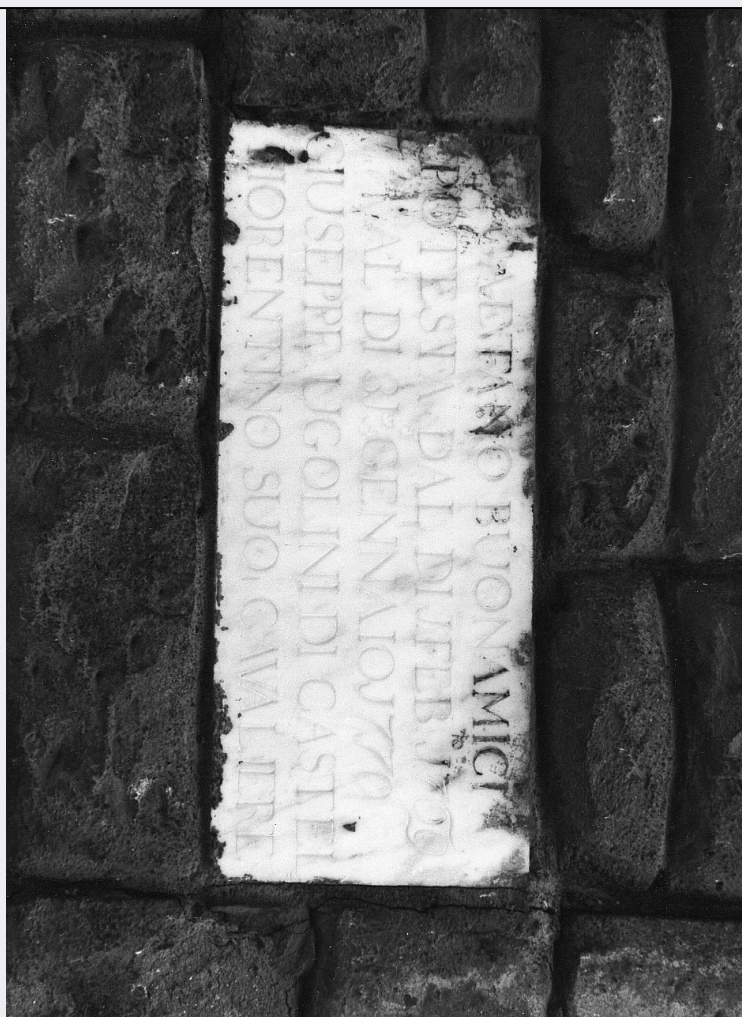 GAETANO BUONAMICI
POTESTA DAL DI 1 FEB.to
AL DI 31 GENNAIO 1770
GIUSEPPE UGOLINI DI CASTEL
FIORENTINO SUO CAVALIERE